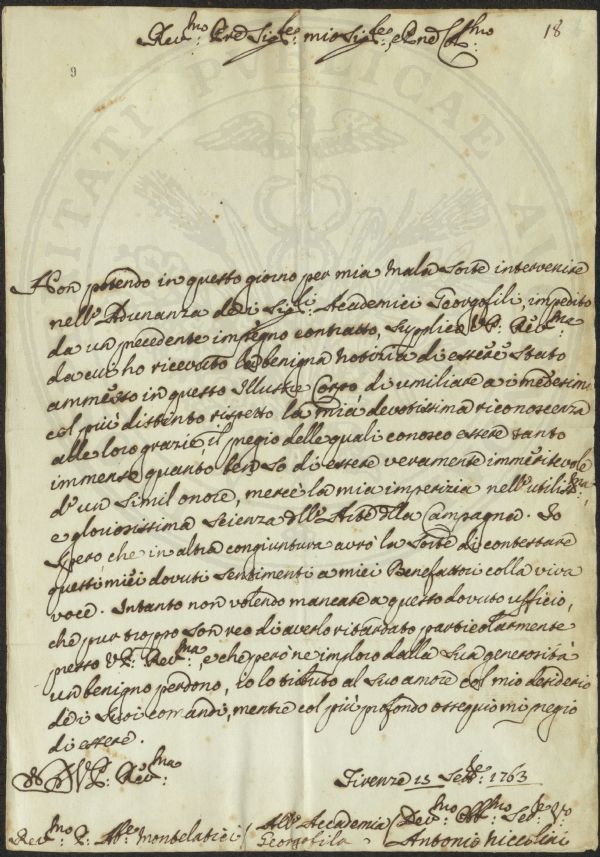 18
Rev.mo Pre Sig.re mio Sig.re, e Pne Col.mo
9
Non potendo in questo giorno per mia mala sorte intervenire
nell'Adunanza dei Sig.ri Academici Georgofili, impedito
da un precedente impegno contratto, supplico V.P. Rev.ma
da cui ho ricevuto la benigna notizia di essere stato
ammesso in questo Illustre Corpo di umiliare ai medesimi
col più distinto rispetto la mia devotissima riconoscenza
alle loro grazie il pregio delle quali conosco essere tanto
immenso quanto ben so di essere veramente immeritevole
d'un simil onore, mercè la mia imperizia nell'utiliss.ma
e gloriosissima Scienza dell'Arte della Campagna. Io
spero che in altra congiuntura avrò la sorte di contestare
questi miei dovuti sentimenti a miei Benefattori colla viva
voce. Intanto non volendo mancare a questo dovuto uffizio,
che pur troppo son reo di averlo ritardato particolarmente
presso V.P. Rev.ma, e che però ne imploro dalla sua generosità
un benigno perdono, io lo tributo al suo amore col mio desiderio
dei suoi comandi, mentre col più profondo ossequio mi pregio
di essere.
D V.P. Rev.ma
Firenze 15 Sett.re 1763
Rev.mo P. Ab.e Montelatici
All'Accademia
Georgofila
Dev.mo Obb.mo Ser.re V.o
Antonio Niccolini
ITATI PVBLICAE AV